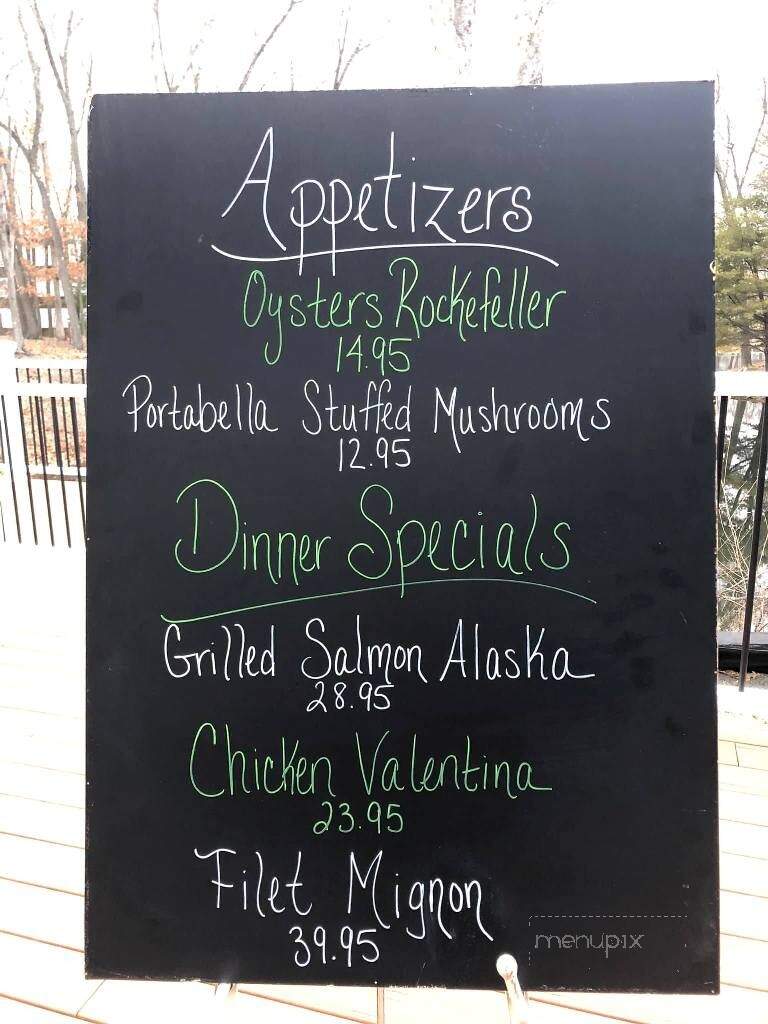 Appetizers
Oysters Rockefeller
14.95
Portabella Stuffed Mushrooms
12.95
Dinner Specials
Grilled Salmon Alaska
28.95
Chicken Valentina
23.95
Filet Mignon
39.95
menupix